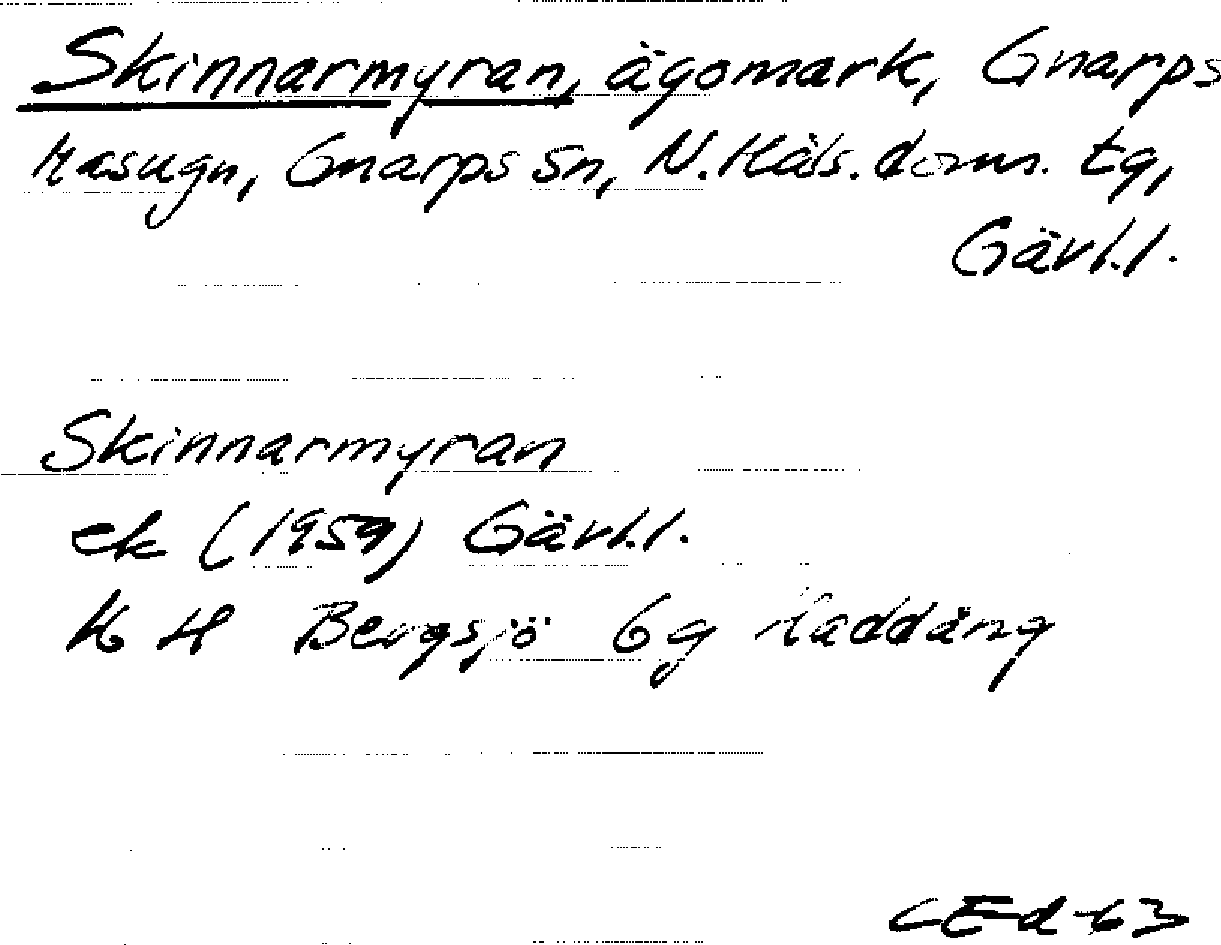 Skinnarmyran, ägomark, Gnarps
Masugn, Gnarps sn, N. Häls. doms. tg,
Gävl.l.
Skinnarmyran
ek (1959) Gävl.l.
Bergsjö 6g Laddäng
CEd-63